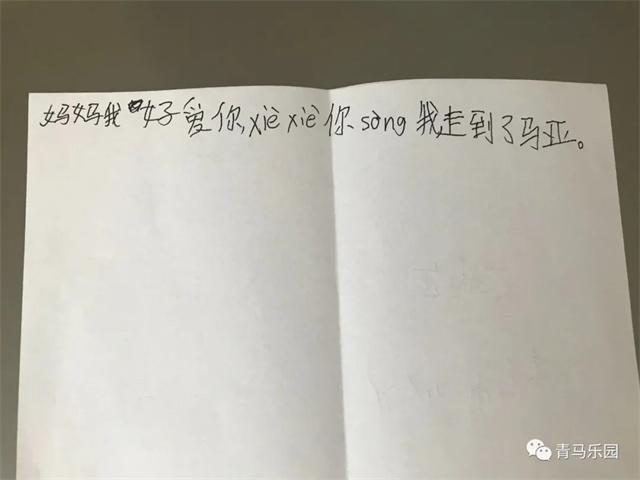 妈妈我好爱你,xiè xiè你sòng我走到了马亚。
青马乐园